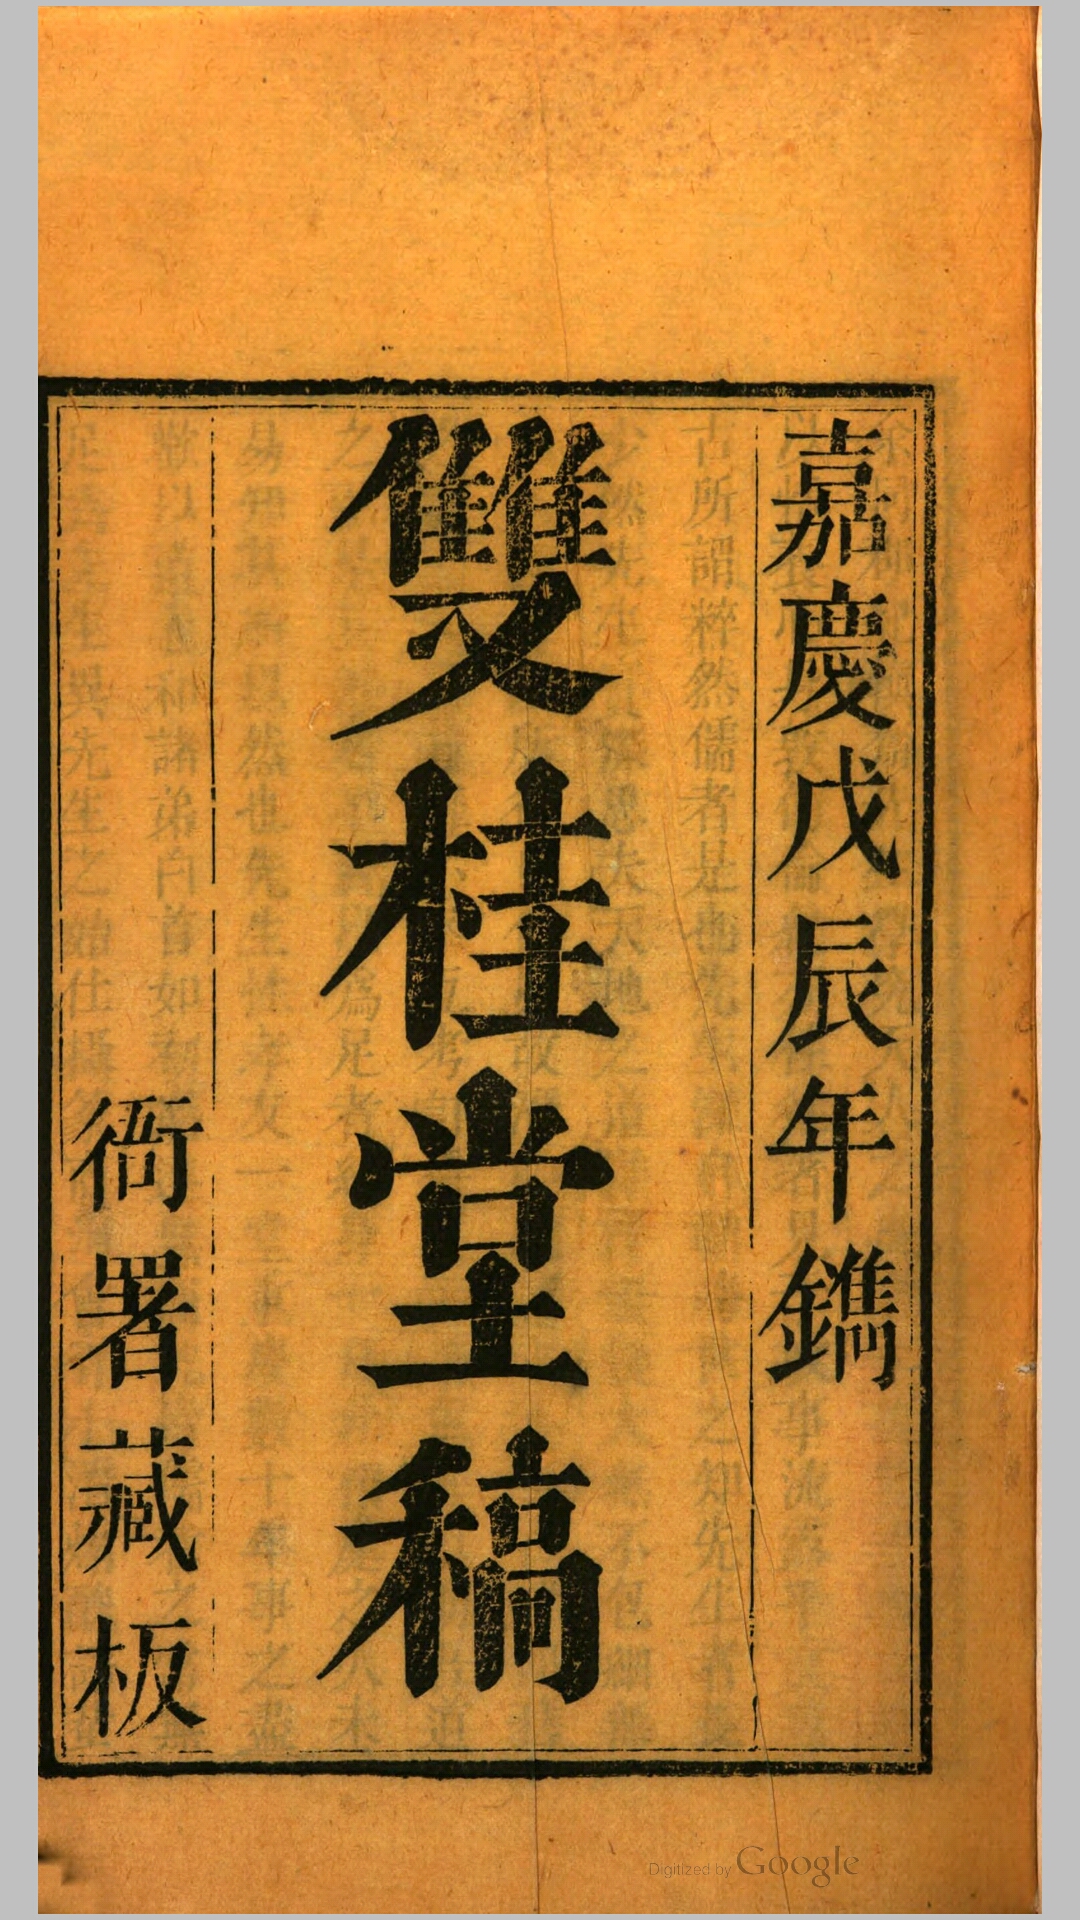 嘉慶戊辰年鐫
雙桂堂稿
衙署藏板
Digitized by Google